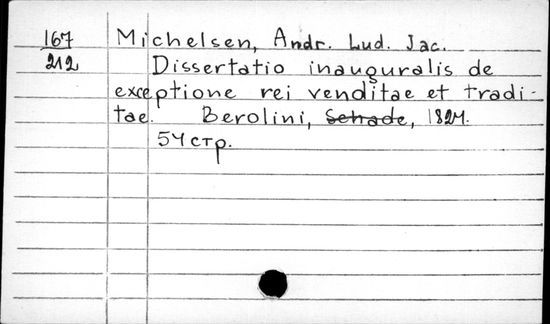 167 Michelsen, Andr. Lud. Jac.
212 Dissertatio inauguralis de
exceptione rei venditae et tradi-
tae. Berolini, Schade, 1824.
54 стр.